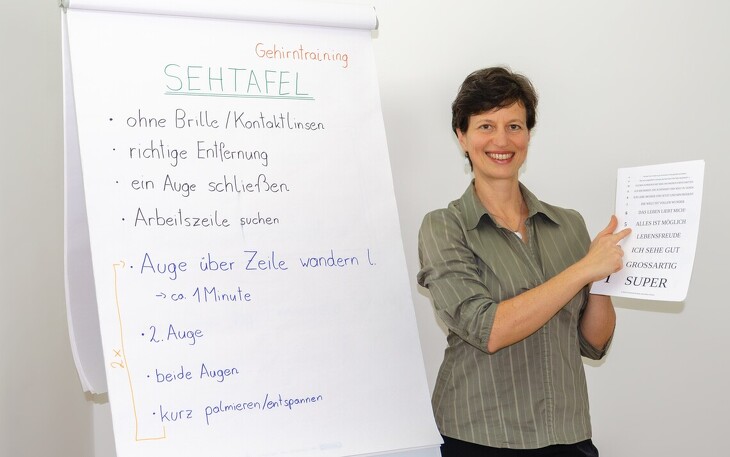 Gehirntraining
SEHTAFEL
· ohne Brille/Kontaktlinsen
· richtige Entfernung
· ein Auge schließen
· Arbeitszeile suchen
· Auge über Zeile wandern l.
→ ca. 1 Minute
· 2. Auge
· beide Augen
· kurz palmieren/entspannen
2x
DAS LEBEN LIEBT MICH
ALLES IST MÖGLICH
LEBENSFREUDE
ICH SEHE GUT
GROSSARTIG
1 SUPER